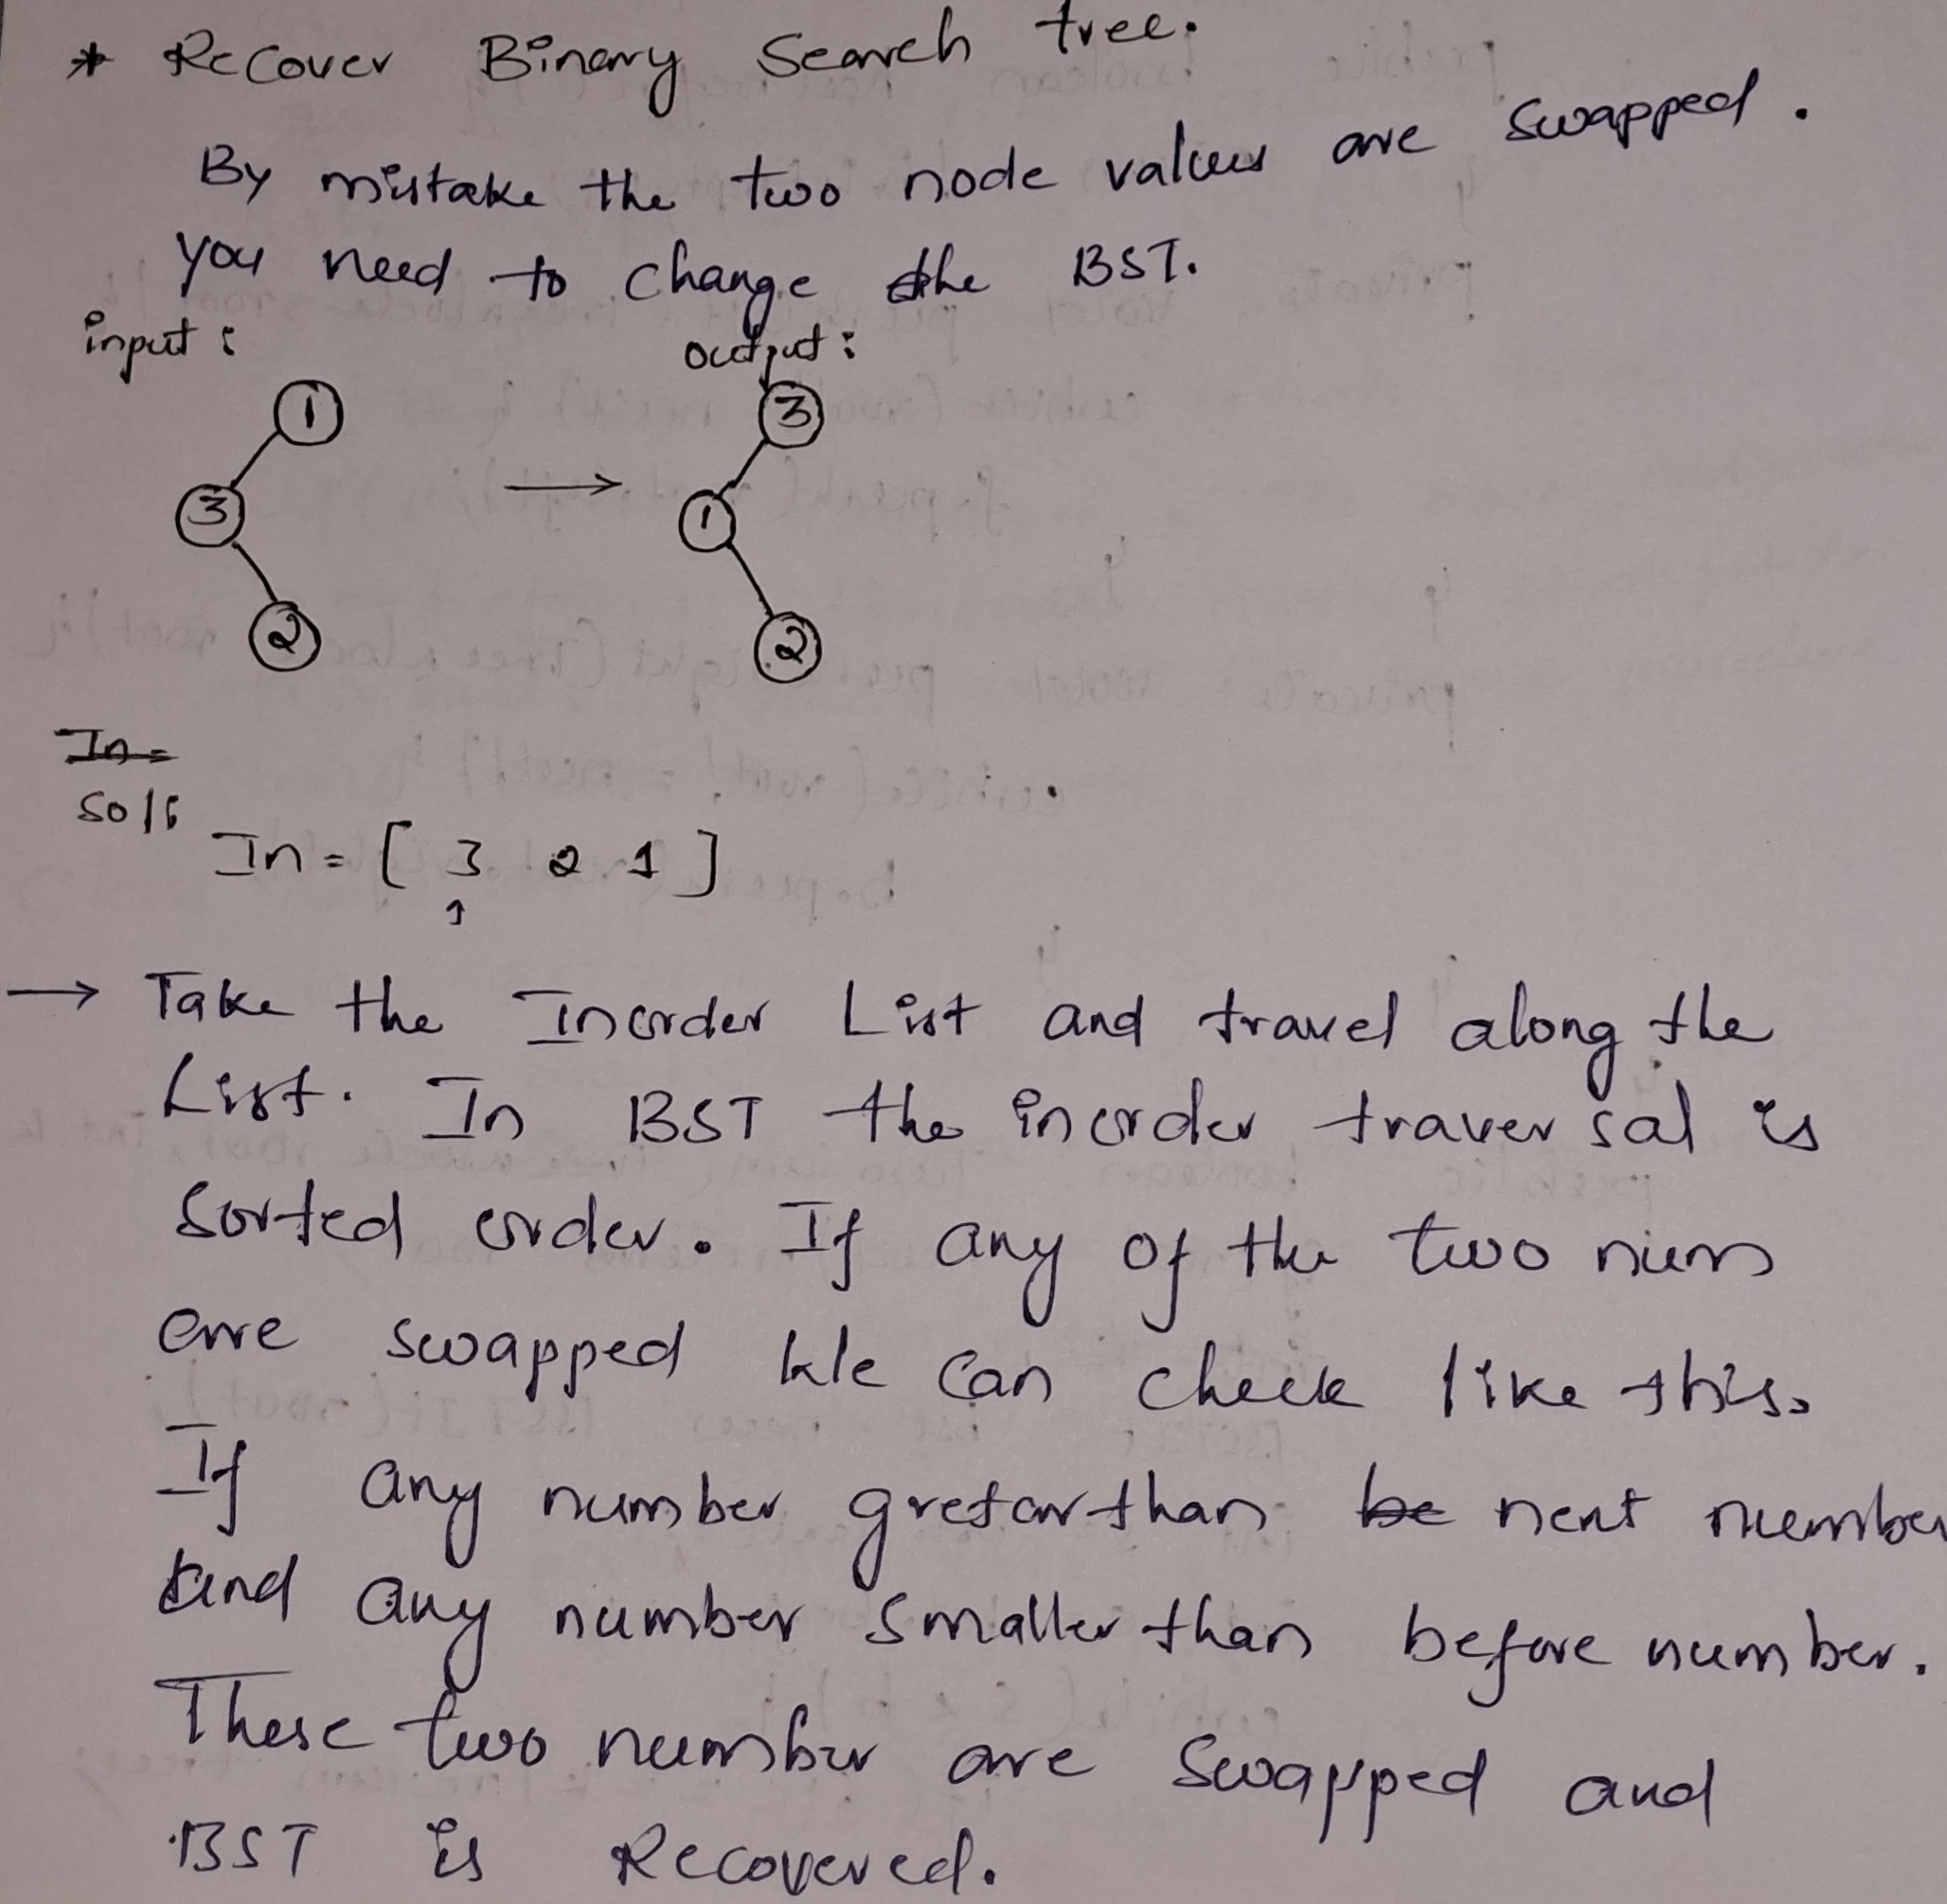 * Recover Binary Search tree.
By mistake the two node values are swapped.
you need to change the BST.
input : output :
1 3
3 1
2 2
In =
Sol:
In = [ 3 2 1 ]
↑
→ Take the Inorder List and travel along the
List. In BST the inorder traversal is
Sorted order. If any of the two num
are swapped We can check like this.
If any number gretarthan be next number
and any number smaller than before number.
These two number are swapped and
BST is Recovered.